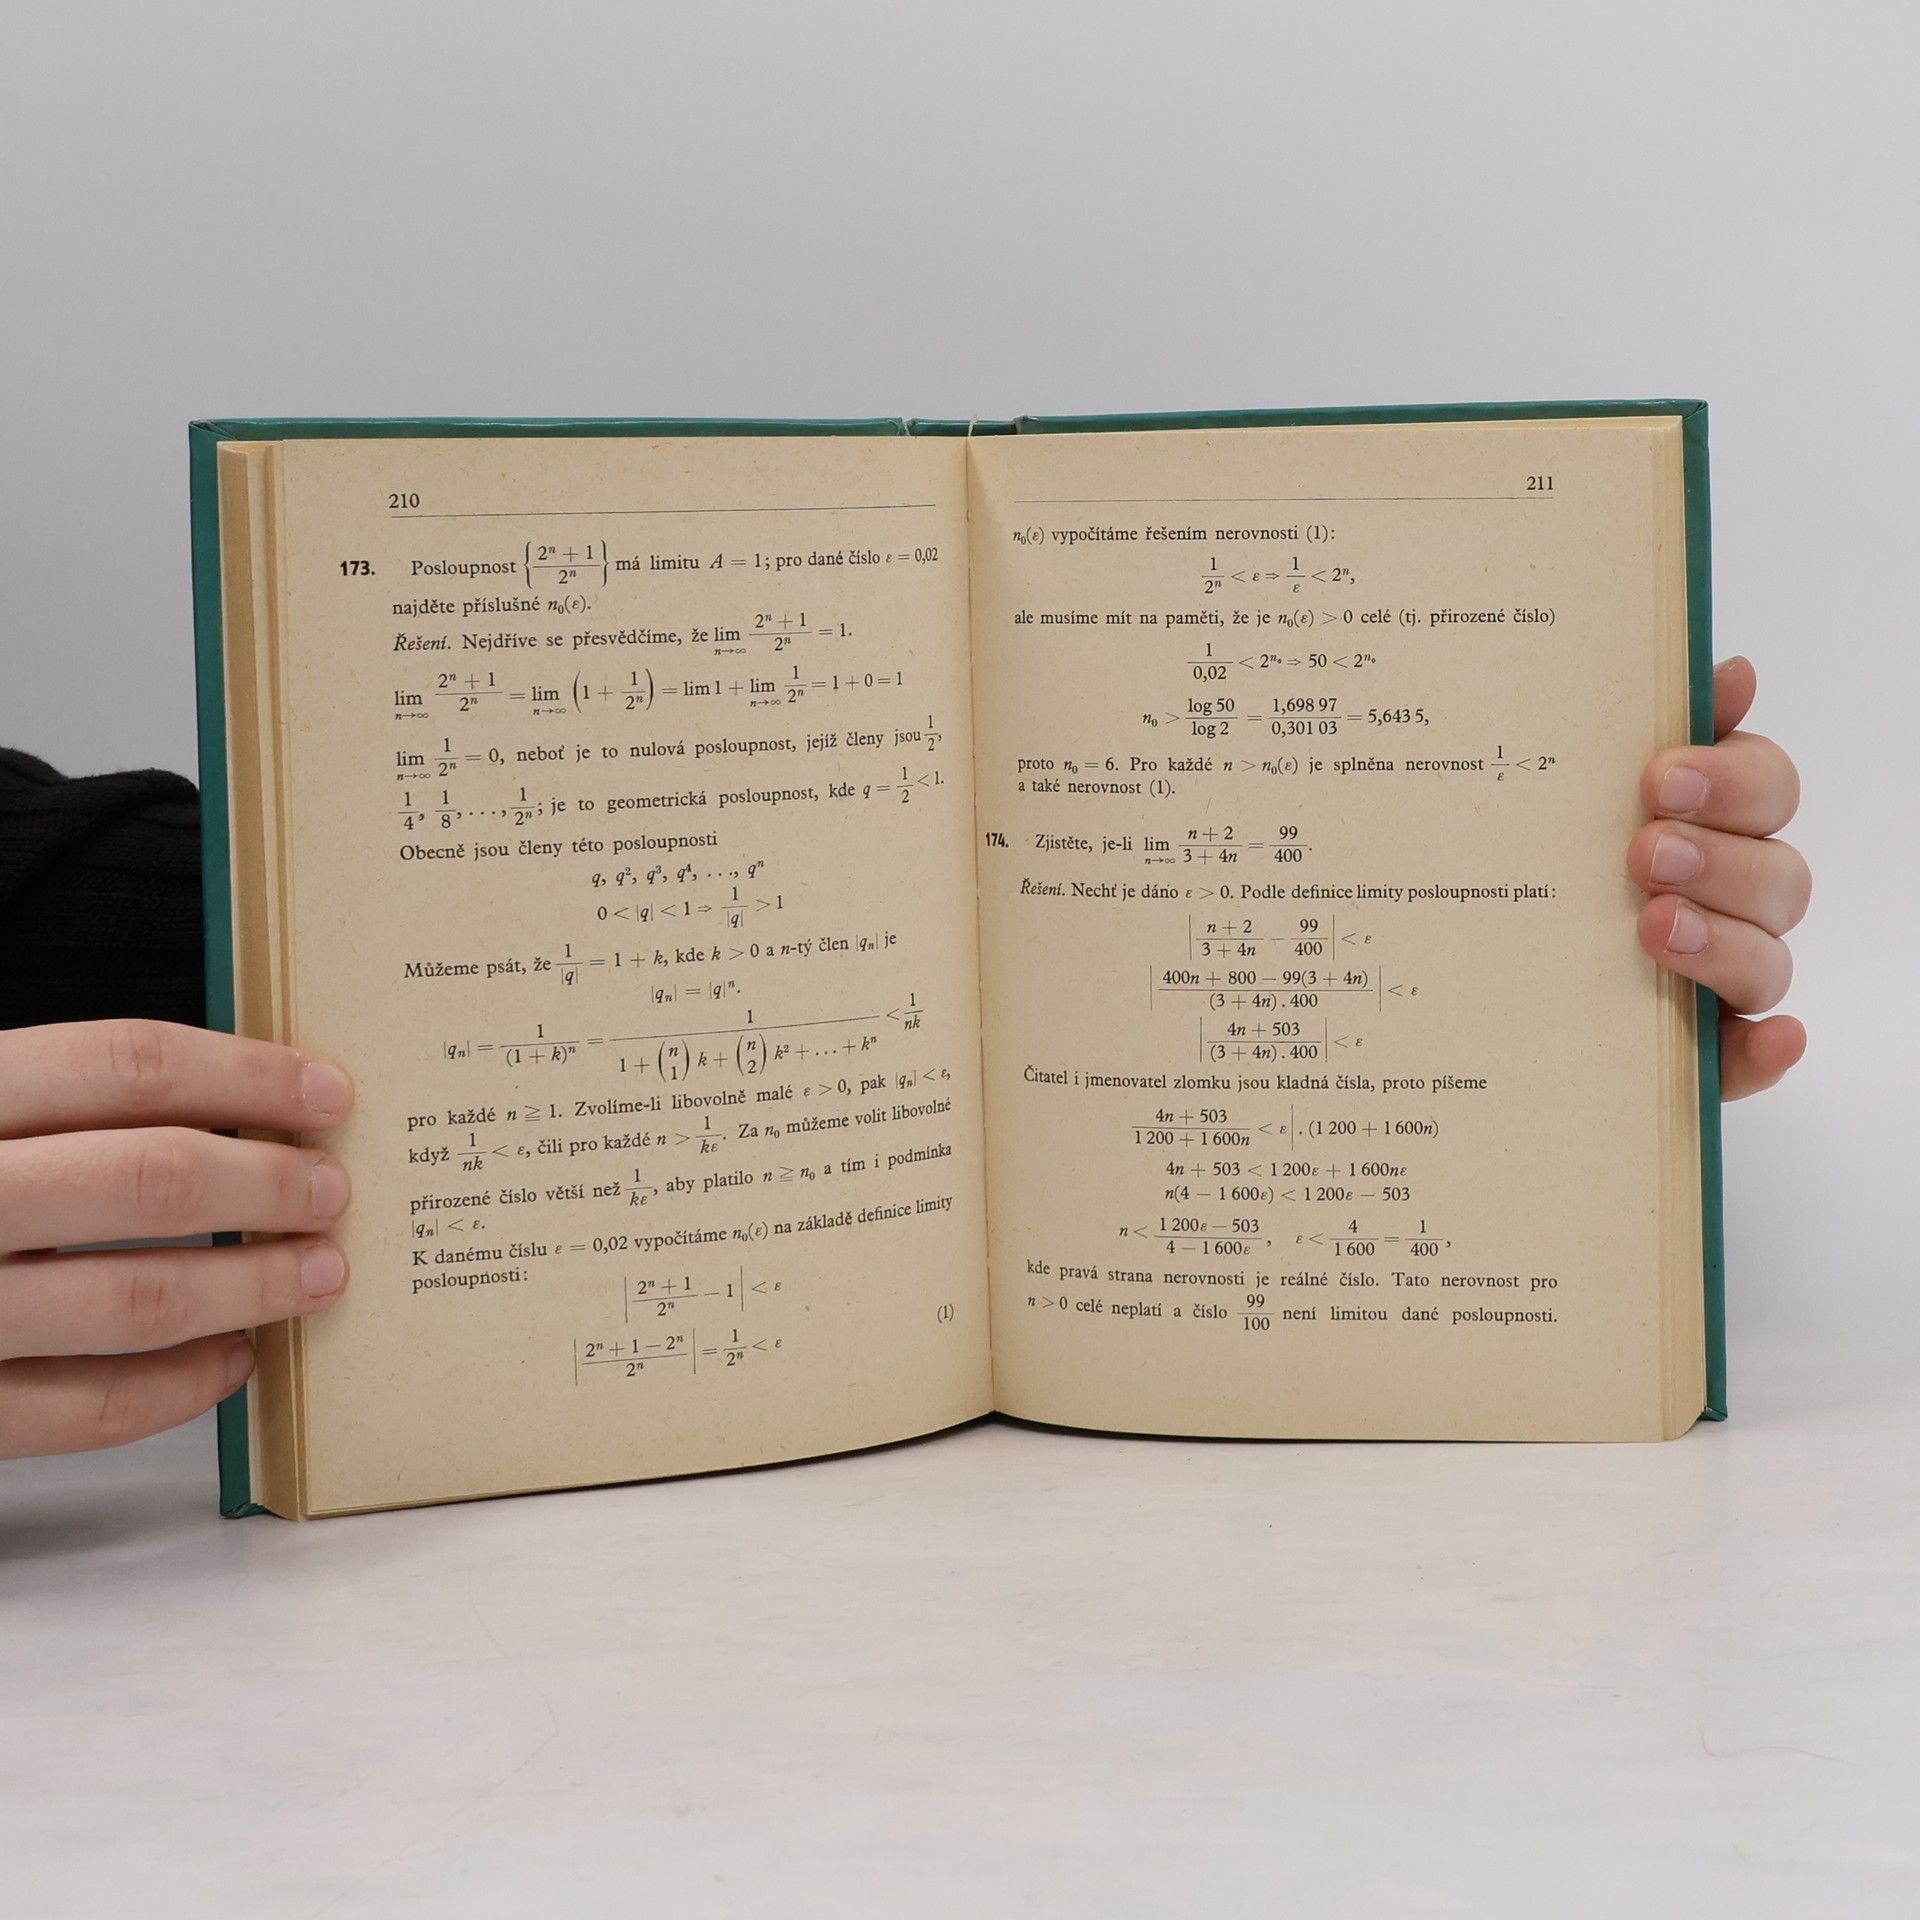 210
173. Posloupnost {(2ⁿ + 1)/2ⁿ} má limitu A = 1; pro dané číslo ε = 0,02
najděte příslušné n₀(ε).
Řešení. Nejdříve se přesvědčíme, že lim n→∞ (2ⁿ + 1)/2ⁿ = 1.
lim n→∞ (2ⁿ + 1)/2ⁿ = lim n→∞ (1 + 1/2ⁿ) = lim 1 + lim n→∞ 1/2ⁿ = 1 + 0 = 1
lim n→∞ 1/2ⁿ = 0, neboť je to nulová posloupnost, jejíž členy jsou 1/2,
1/4, 1/8, . . . , 1/2ⁿ; je to geometrická posloupnost, kde q = 1/2 < 1.
Obecně jsou členy této posloupnosti
q, q², q³, q⁴, . . ., qⁿ
0 < |q| < 1 ⇒ 1/|q| > 1
Můžeme psát, že 1/|q| = 1 + k, kde k > 0 a n-tý člen |qₙ| je
|qₙ| = |q|ⁿ.
|qₙ| = 1/(1 + k)ⁿ = 1/(1 + (n 1) k + (n 2) k² + . . . + kⁿ) < 1/nk
pro každé n ≧ 1. Zvolíme-li libovolně malé ε > 0, pak |qₙ| < ε,
když 1/nk < ε, čili pro každé n > 1/kε. Za n₀ můžeme volit libovolné
přirozené číslo větší než 1/kε, aby platilo n ≧ n₀ a tím i podmínka
|qₙ| < ε.
K danému číslu ε = 0,02 vypočítáme n₀(ε) na základě definice limity
posloupnosti:
|(2ⁿ + 1)/2ⁿ − 1| < ε
(1)
|(2ⁿ + 1 − 2ⁿ)/2ⁿ| = 1/2ⁿ < ε
211
n₀(ε) vypočítáme řešením nerovnosti (1):
1/2ⁿ < ε ⇒ 1/ε < 2ⁿ,
ale musíme mít na paměti, že je n₀(ε) > 0 celé (tj. přirozené číslo)
1/0,02 < 2ⁿ⁰ ⇒ 50 < 2ⁿ⁰
n₀ > log 50/log 2 = 1,698 97/0,301 03 = 5,643 5,
proto n₀ = 6. Pro každé n > n₀(ε) je splněna nerovnost 1/ε < 2ⁿ
a také nerovnost (1).
174. Zjistěte, je-li lim n→∞ (n + 2)/(3 + 4n) = 99/400.
Řešení. Nechť je dáno ε > 0. Podle definice limity posloupnosti platí:
|(n + 2)/(3 + 4n) − 99/400| < ε
|(400n + 800 − 99(3 + 4n))/((3 + 4n) . 400)| < ε
|(4n + 503)/((3 + 4n) . 400)| < ε
Čitatel i jmenovatel zlomku jsou kladná čísla, proto píšeme
(4n + 503)/(1 200 + 1 600n) < ε | . (1 200 + 1 600n)
4n + 503 < 1 200ε + 1 600nε
n(4 − 1 600ε) < 1 200ε − 503
n < (1 200ε − 503)/(4 − 1 600ε), ε < 4/1 600 = 1/400,
kde pravá strana nerovnosti je reálné číslo. Tato nerovnost pro
n > 0 celé neplatí a číslo 99/100 není limitou dané posloupnosti.